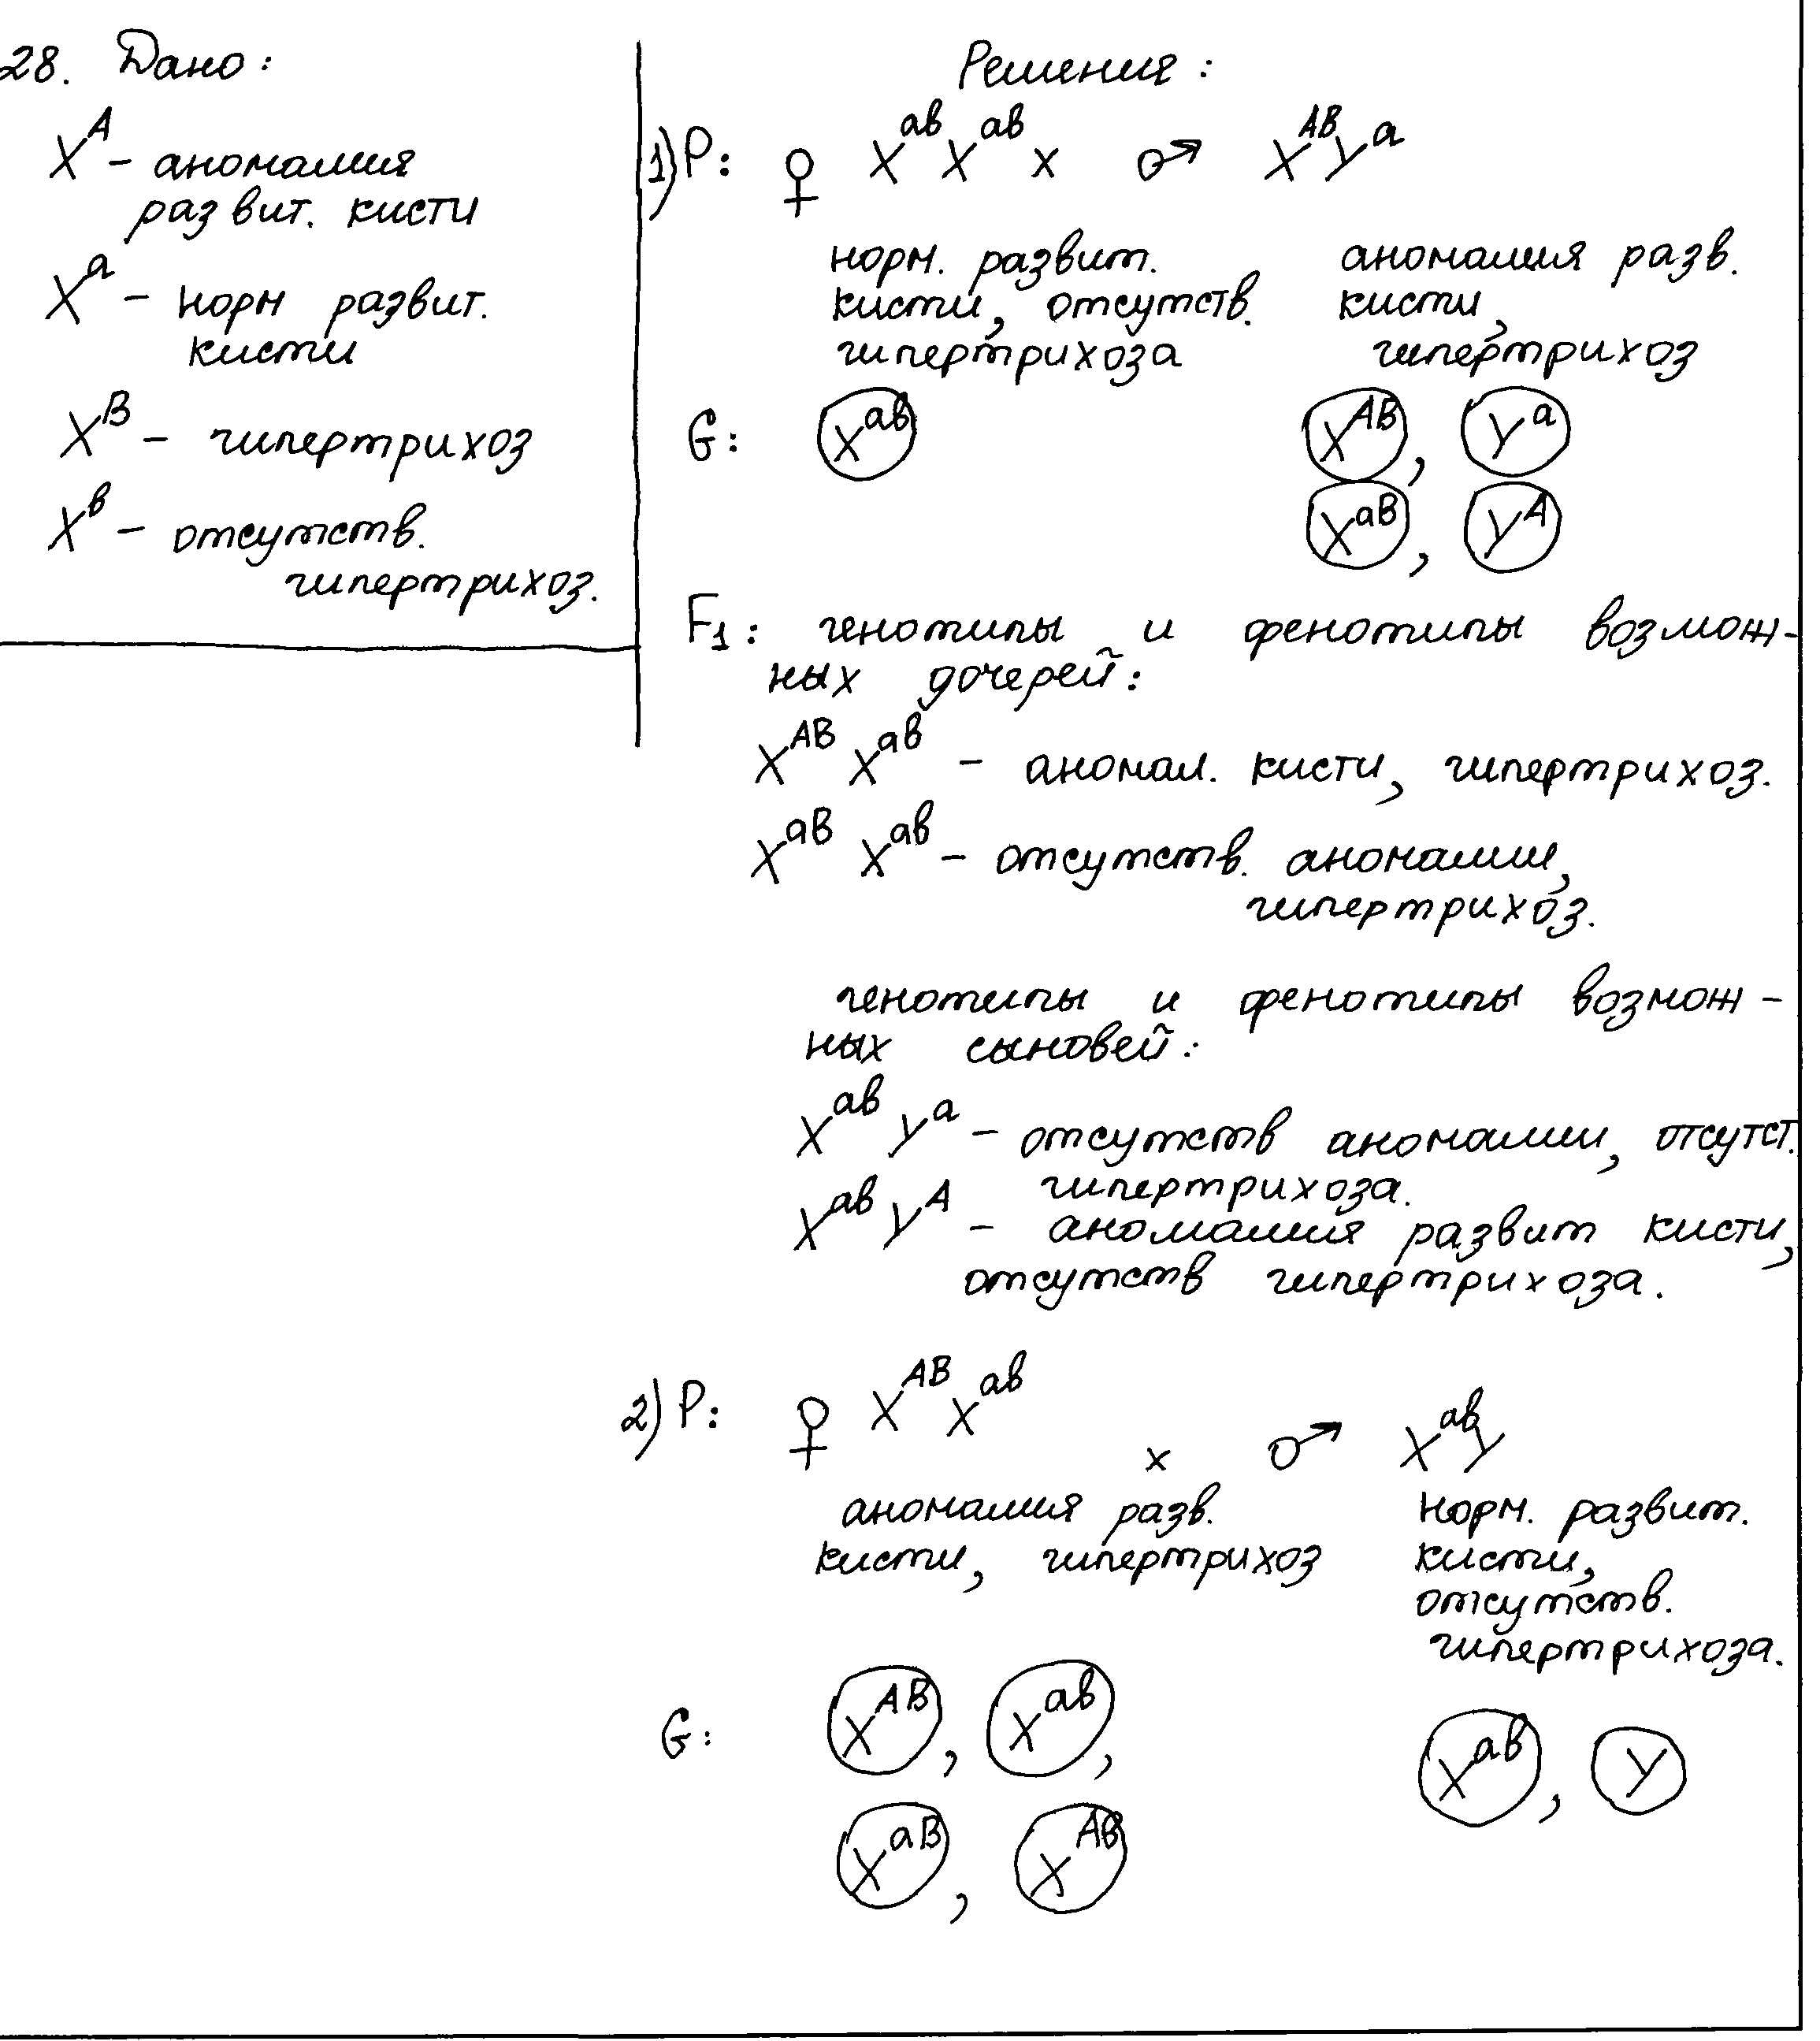 28. Дано:
X^A - аномалия
развит. кисти
X^a - норм развит.
кисти
X^B - гипертрихоз
X^в - отсутств.
гипертрихоз.
Решения:
1) P: ♀ X^ав X^ав x ♂ X^AB Y^a
норм. развит.
кисти, отсутств.
гипертрихоза
аномалия разв.
кисти,
гипертрихоз
G: X^ав X^AB, Y^a
X^aB, Y^A
F1: генотипы и фенотипы возмож-
ных дочерей:
X^AB X^ав - аномал. кисти, гипертрихоз.
X^aB X^ав - отсутств. аномалии,
гипертрихоз.
генотипы и фенотипы возмож-
ных сыновей:
X^ав Y^a - отсутств аномалии, отсутст.
гипертрихоза.
X^ав Y^A - аномалия развит кисти,
отсутств гипертрихоза.
2) P: ♀ X^AB X^ав x ♂ X^ав Y
аномалия разв.
кисти, гипертрихоз
норм. развит.
кисти,
отсутств.
гипертрихоза.
G: X^AB, X^ав, X^ав, Y
X^aB, X^Aв